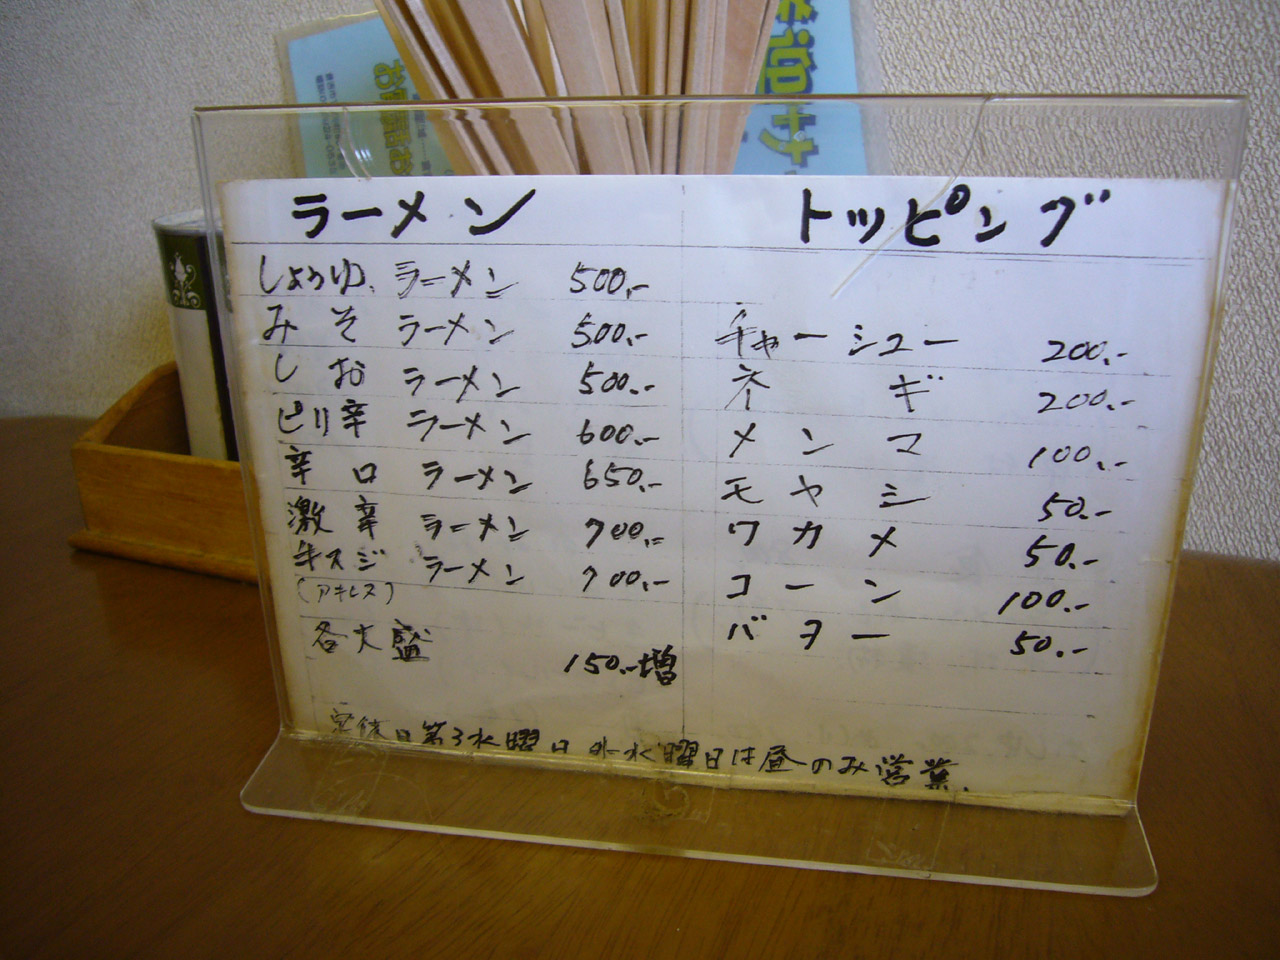 ラーメン
しょうゆ ラーメン 500.-
みそ ラーメン 500.-
しお ラーメン 500.-
ピリ辛 ラーメン 600.-
辛口 ラーメン 650.-
激辛 ラーメン 700.-
牛スジ ラーメン 700.-
(アキレス)
各大盛
150.-増
トッピング
チャーシュー 200.-
ネギ 200.-
メンマ 100.-
モヤシ 50.-
ワカメ 50.-
コーン 100.-
バター 50.-
定休日第3水曜日 水曜日は昼のみ営業.